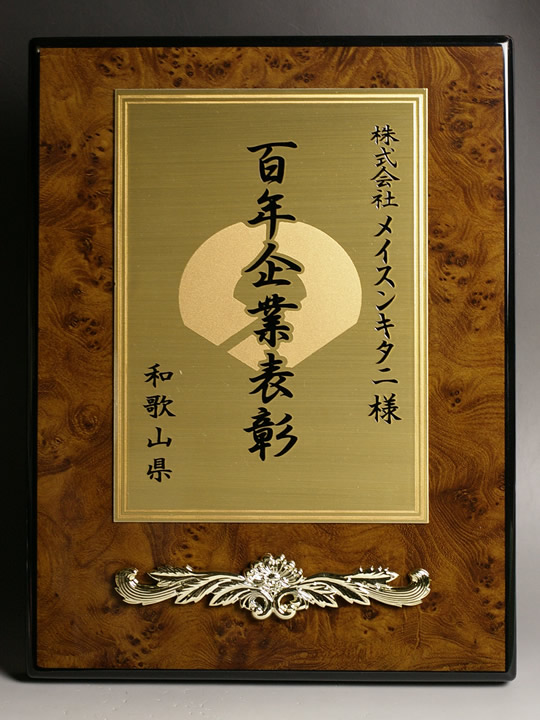 株式会社 メイスンキタニ様
百年企業表彰
和歌山県